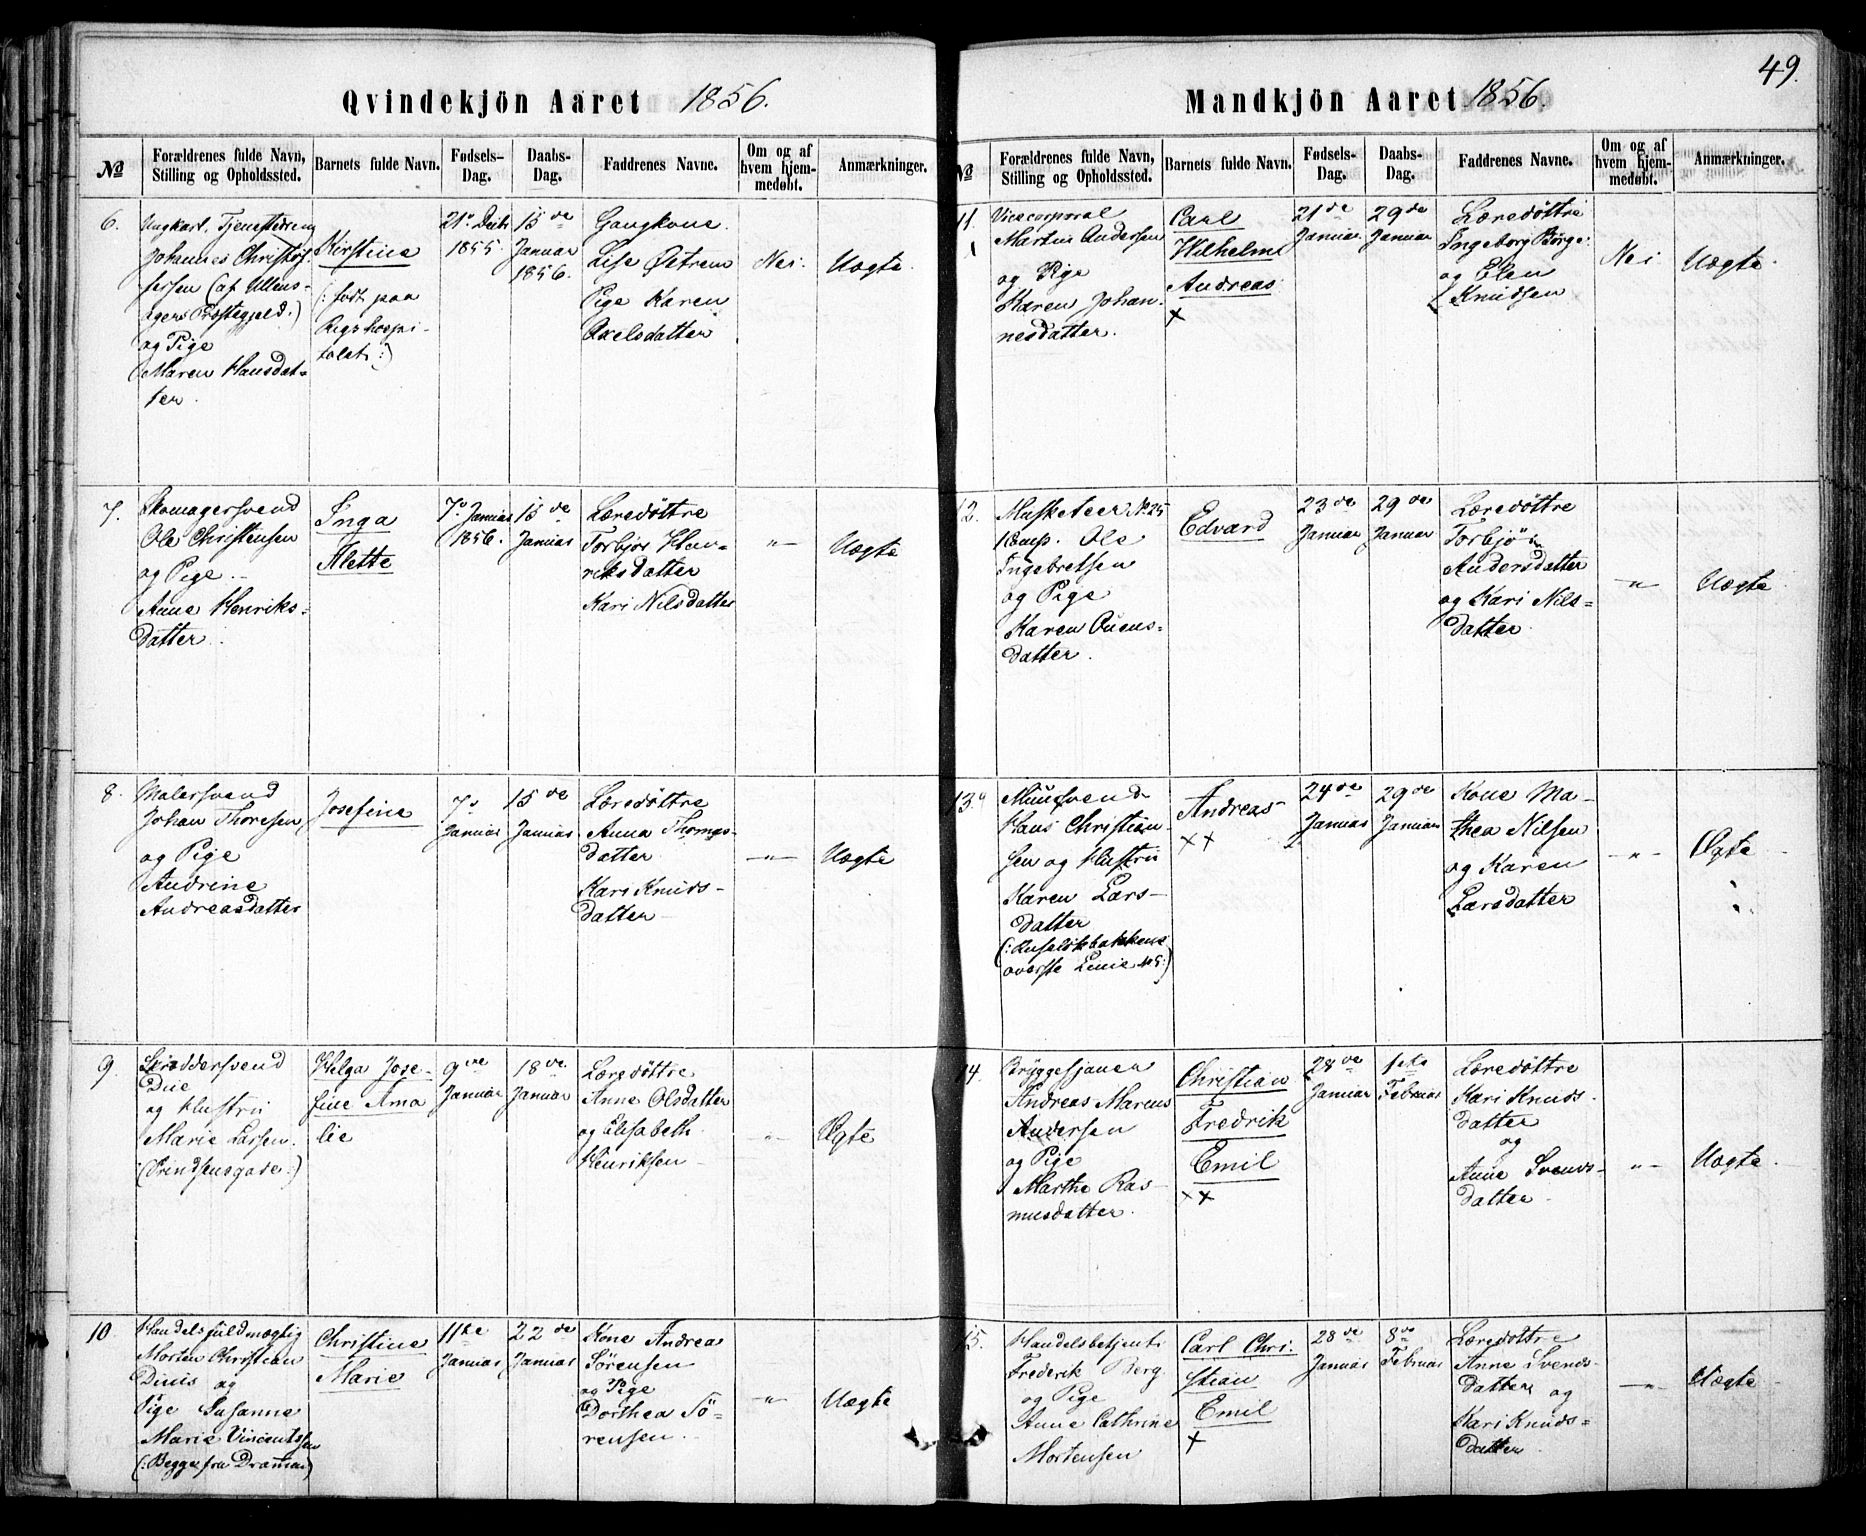 49.
Qvindekjön Aaret 1856.
No
Forældrenes fulde Navn, Stilling og Opholdssted.
Barnets fulde Navn.
Fødsels-Dag.
Daabs-Dag.
Faddrenes Navne.
Om og af hvem hjemmedøbt.
Anmærkninger.
6.
Ungkarl, Tjenestedreng
Johannes Christof-
fersen (af Ullens-
agers Præstegjeld.)
og Pige
Maren Hansdat-
ter.
Kirstine
(: født paa
Rigshospi-
talet :)
21de Decbr
1855.
15de
Januar
1856.
Gangkone
Lise Østrem
Pige Karen
Axelsdatter
Nei.
Uægte.
7.
Skomagersvend
Ole Christensen
og Pige
Anne Henriks-
datter
Inga
Alette
7de Januar
1856.
15de
Januar
Læredøttre
Torbjør Hen-
riksdatter
Kari Nilsdatter
-"-
Uægte
8.
Malersvend
Johan Thoresen
og Pige
Andrine
Andreasdatter
Josefine
7de
Januar
15de
Januar
Læredøttre
Anna Thoms-
datter
Kari Knuds-
datter
-"-
Uægte
9.
Skræddersvend
Due
og Hustru
Marie Larsen.
(Prindsensgade:)
Helga Jose-
fine Ama
lie
9de
Januar
18de
Januar
Læredøttre
Anne Olsdatter
og Elisabeth
Henriksen
-"-
Ægte
10.
Handelsfuldmægtig
Morten Christian
og
Pige Susanne
Marie Vincentsen
(: Begge fra Drammen)
Christine
Marie
11te
Januar
22de
Januar
Kone Andrea
Sørensen
og Pige
Dorthea Sö-
rensen
-"-
Uægte
Mandkjön Aaret 1856.
No
Forældrenes fulde Navn, Stilling og Opholdssted.
Barnets fulde Navn.
Fødsels-Dag.
Daabs-Dag.
Faddrenes Navne.
Om og af hvem hjemmedøbt.
Anmærkninger.
11.
Vicecorporal
Martin Andersen
og Pige
Karen Johan-
nesdatter.
Carl
Wilhelm
Andreas
+
21de
Januar
29de
Januar
Læredøttre
Ingeborg Børge
og Elen
Knudsen
Nei
Uægte
12.
Musketeer No 25
Komp. Ole
Ingebretsen
og Pige
Karen Ouens-
datter.
Edvard
23de
Januar
29de
Januar
Læredøttre
Torbjör
Andersdatter
og Kari Nils-
datter
-"-
Uægte
13.
Muursvend
Hans Christian-
sen og Hustru
Karen Lars-
datter
(: Ruseløkbakkens
øverste Linie No 5:)
Andreas
++
24de
Januar
29de
Januar
Kone Ma-
thea Nilsen
og Karen
Larsdatter
-"-
Ægte
14.
Bryggesjauer
Andreas Marcus
Andersen
og Pige
Marthe Ras-
musdatter.
Christian
Fredrik
Emil
++
28de
Januar
1ste
Februar
Læredøttre
Kari Knuds-
datter
og
Anne Svends-
datter
-"-
Uægte
15.
Handelsbetjent
Frederik Berg
og Pige
Anne Cathrine
Mortensen
Carl Chri-
stian
Emil
+
28de
Januar
8de
Februar
Læredøttre
Anne Svends-
datter og
Kari Knuds-
datter
-"-
Uægte